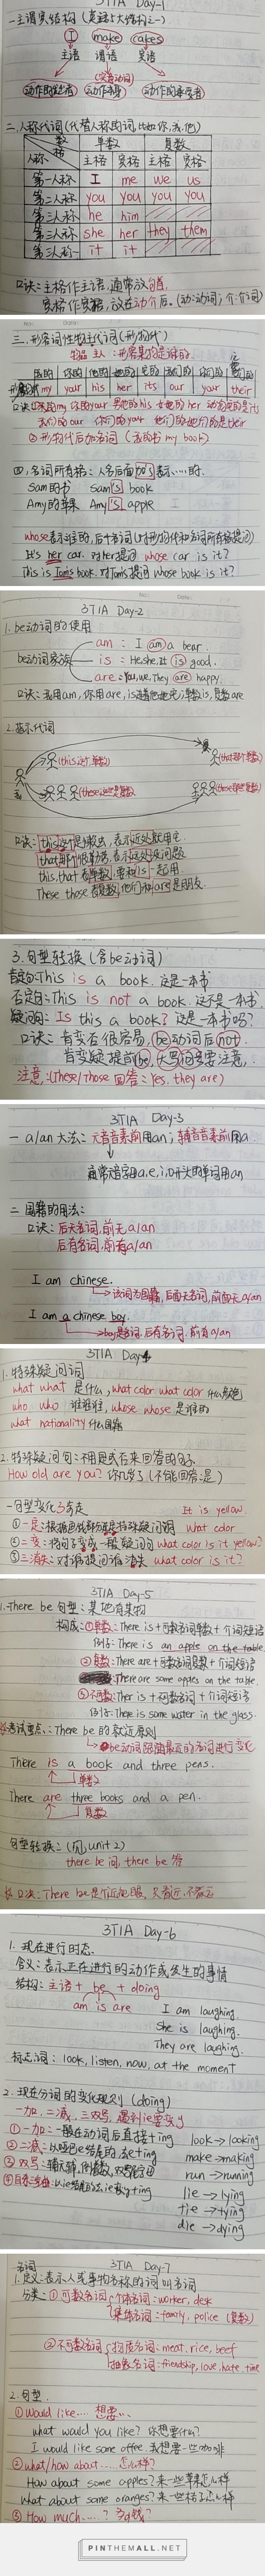 3TIA Day-1
一.主谓宾结构 (英语5大结构之一)
I make cakes
主语 谓语 宾语
(实意动词)
动作的发起者 动作本身 动作的承受者
二.人称代词 (代替人称的词,比如你,我,他)
数 单数 复数
人称 格 主格 宾格 主格 宾格
第一人称 I me we us
第二人称 you you you you
第三人称 he him
第三人称 she her they them
第三人称 it it
口诀:主格作主语,通常放句首,
宾格作宾语,放在动介后。(动:动词;介:介词)
No: Date:
三.形容词性物主代词(形物代)
物品 主人:形容某物是谁的.
我的 你的 他的 她的 它的 我们的 你们的 他们的
形物代 my your his her its our your their
口诀:我的my 你的your 男他的his 女她的her 动它的是its
我们的our 你们的your 他们的她们的是their
② 形物代后加名词 (我的书 my book)
四,名词所有格:人名后面加's表示……的.
Sam的书 Sam's book
Amy的苹果 Amy's apple
whose表示谁的,后+名词(对形物代和名词所有格提问)
It's her car. 对her提问 whose car is it?
This is Tom's book. 对Tom's提问 whose book is it?
3TIA Day-2
1. be动词的使用
am: I am a bear.
be动词家族 is: He, she, it is good.
are: You, we, They are happy.
口诀:我用am,你用are,is连着他她它;单数is,复数are
2.指示代词
(this这个,单数) (that那个单数)
我 (these这些复数) (those那些复数)
3.句型转换 (含be动词)
肯定句:This is a book. 这是一本书
否定句:This is not a book. 这不是一本书.
疑问句:Is this a book? 这是一本书吗?
口诀:肯变否很容易,be动词后not.
肯变疑提前be,大写问号要注意,
注意:(These/those 回答:Yes, they are)
3TIA Day-3
一 a/an 大法:元音音素前用an;辅音音素前用a
通常情况用a,e,i,o开头的单词用an
二 国籍的用法:
口诀:后无名词,前无a/an
后有名词,前有a/an
I am chinese.
该词为国籍,后面无名词,前面无a/an
I am a chinese boy.
boy是名词,后有名词,前有a/an
3TIA Day-4
1.特殊疑问词
what what 是什么, what color what color 什么颜色
who who 谁谁谁, whose whose 是谁的
what nationality 什么国籍
2.特殊疑问句:不用是或否来回答的句子.
How old are you? 你几岁了(不能回答是)
一句型变化3步走 It is yellow.
①一定:根据画线部分定特殊疑问词 what color
②二变:将句子变成一般疑问句 what color is it yellow?
③三消失:对谁提问谁消失 what color is it?
3TIA Day-5
1.There be 句型:某地有某物
构成:①单数:There is+可数名词单数+介词短语
例子:There is an apple on the table.
②复数:There are+可数名词复数+介词短语
:There are some apples on the table.
③不可数:There is+不可数名词+介词短语
例子:There is some water in the glass.
考试重点:There be 的就近原则
be动词跟由最近的名词进行变化
There is a book and three pens.
单数
There are three books and a pen.
复数
句型转换:(见unit 2)
there be 问,there be 答
口诀:There be是个近视眼,只看近,不看远
3TIA Day-6
1. 现在进行时态.
含义:表示正在进行的动作或发生的事情
结构:主语+ be + doing
am is are I am laughing.
She is laughing.
They are laughing.
标志词:look, listen, now, at the moment
2.现在分词的变化规则 (doing)
一加,二减,三双写,遇到ie要变y
①一加:一般在动词后直接+ing look→looking
②二减:以哑巴e结尾的,去e+ing make→making
run→running
lie→lying
tie→tying
die→dying
3TIA Day-7
名词
1.定义:表示人或事物名称的词叫名词
分类:①可数名词 个体名词:worker, desk
集体名词:family, police (复数)
②不可数名词 物质名词:meat, rice, beef
抽象名词:friendship, love, hate, time
2. 句型.
①Would like…… 想要……
what would you like? 你想要什么?
I would like some coffee 我想要一些咖啡
②what/how about…… 怎么样?
How about some apples? 来一些苹果怎么样
What about some oranges? 来一些桔子怎么样
③ How much……? 多少钱?
PINTHEMALL.NET